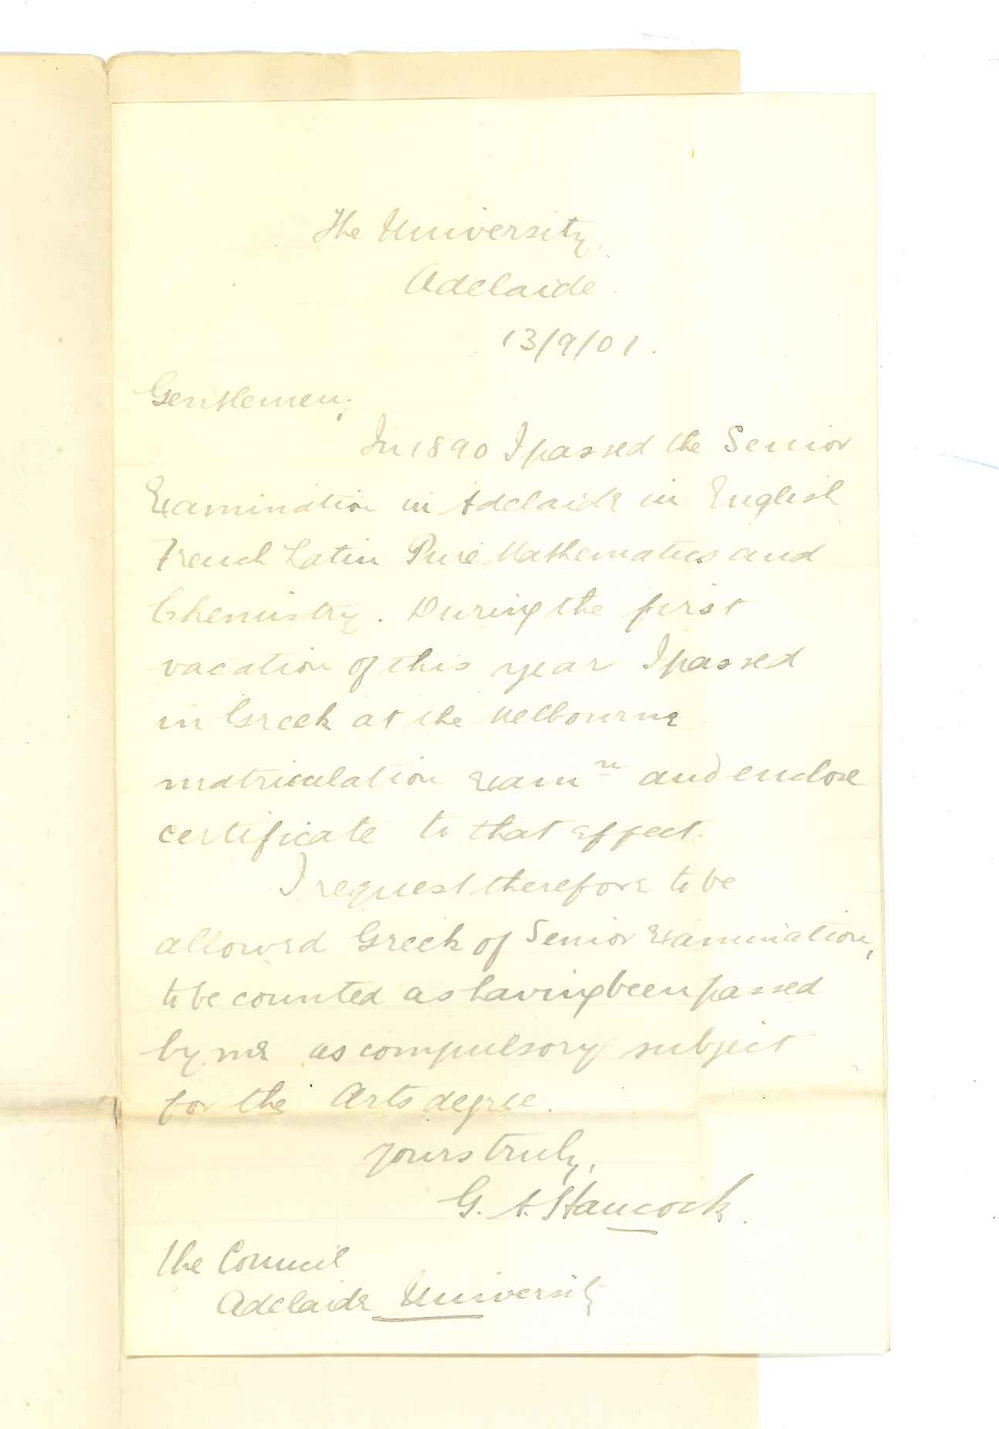 The University,
Adelaide.
13/9/01.
Gentlemen,
In 1890 I passed the Senior
Examination in Adelaide in English,
French Latin Pure Mathematics and
Chemistry. During the first
vacation of this year I passed
in Greek at the Melbourne
matriculation examn and enclose
certificate to that effect.
I request therefore to be
allowed Greek of Senior Examination,
to be counted as having been passed
by me as compulsory subject
for the Arts degree.
Yours truly,
G. A. Hancock.
The Council
Adelaide University